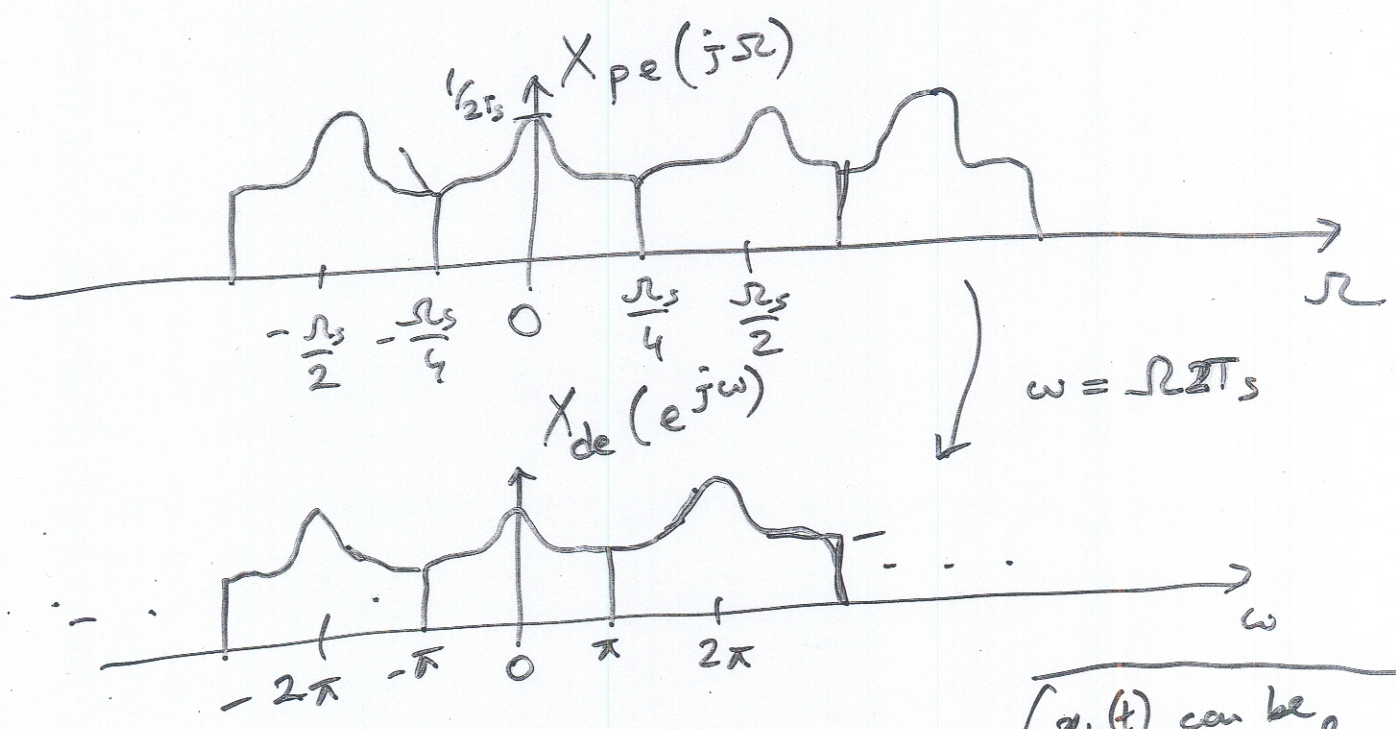 X_pe(jΩ)
1/2Ts
-Ωs/2 -Ωs/4 0 Ωs/4 Ωs/2 Ω
ω = Ω2Ts
X_de(e^jω)
-2π -π 0 π 2π ω
(t) can be